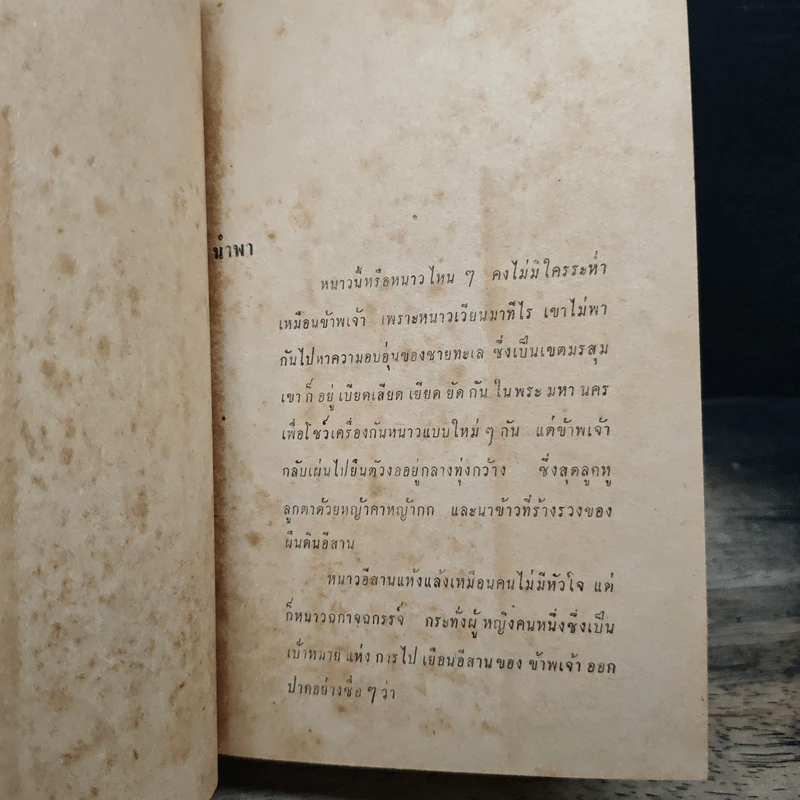 นำพา
หนาวนี้หรือหนาวไหน ๆ คงไม่มีใครระห่ำ
เหมือนข้าพเจ้า เพราะหนาวเวียนมาทีไร เขาไม่พา
กันไปหาความอบอุ่นของชายทะเล ซึ่งเป็นเขตมรสุม
เขาก็ อยู่ เบียดเสียด เยียด ยัด กัน ในพระ มหา นคร
เพื่อโชว์เครื่องกันหนาวแบบใหม่ ๆ กัน แต่ข้าพเจ้า
กลับเผ่นไปยืนตัวงออยู่กลางทุ่งกว้าง ซึ่งสุดลูกหู
ลูกตาด้วยหญ้าคาหญ้ากก และนาข้าวที่ร้างรวงของ
ผืนดินอีสาน
หนาวอีสานแห้งแล้งเหมือนคนไม่มีหัวใจ แต่
ก็หนาวฉกาจฉกรรจ์ กระทั่งผู้ หญิงคนหนึ่งซึ่งเป็น
เป้าหมาย แห่ง การไป เยือนอีสาน ของ ข้าพเจ้า ออก
ปากอย่างซื่อ ๆ ว่า